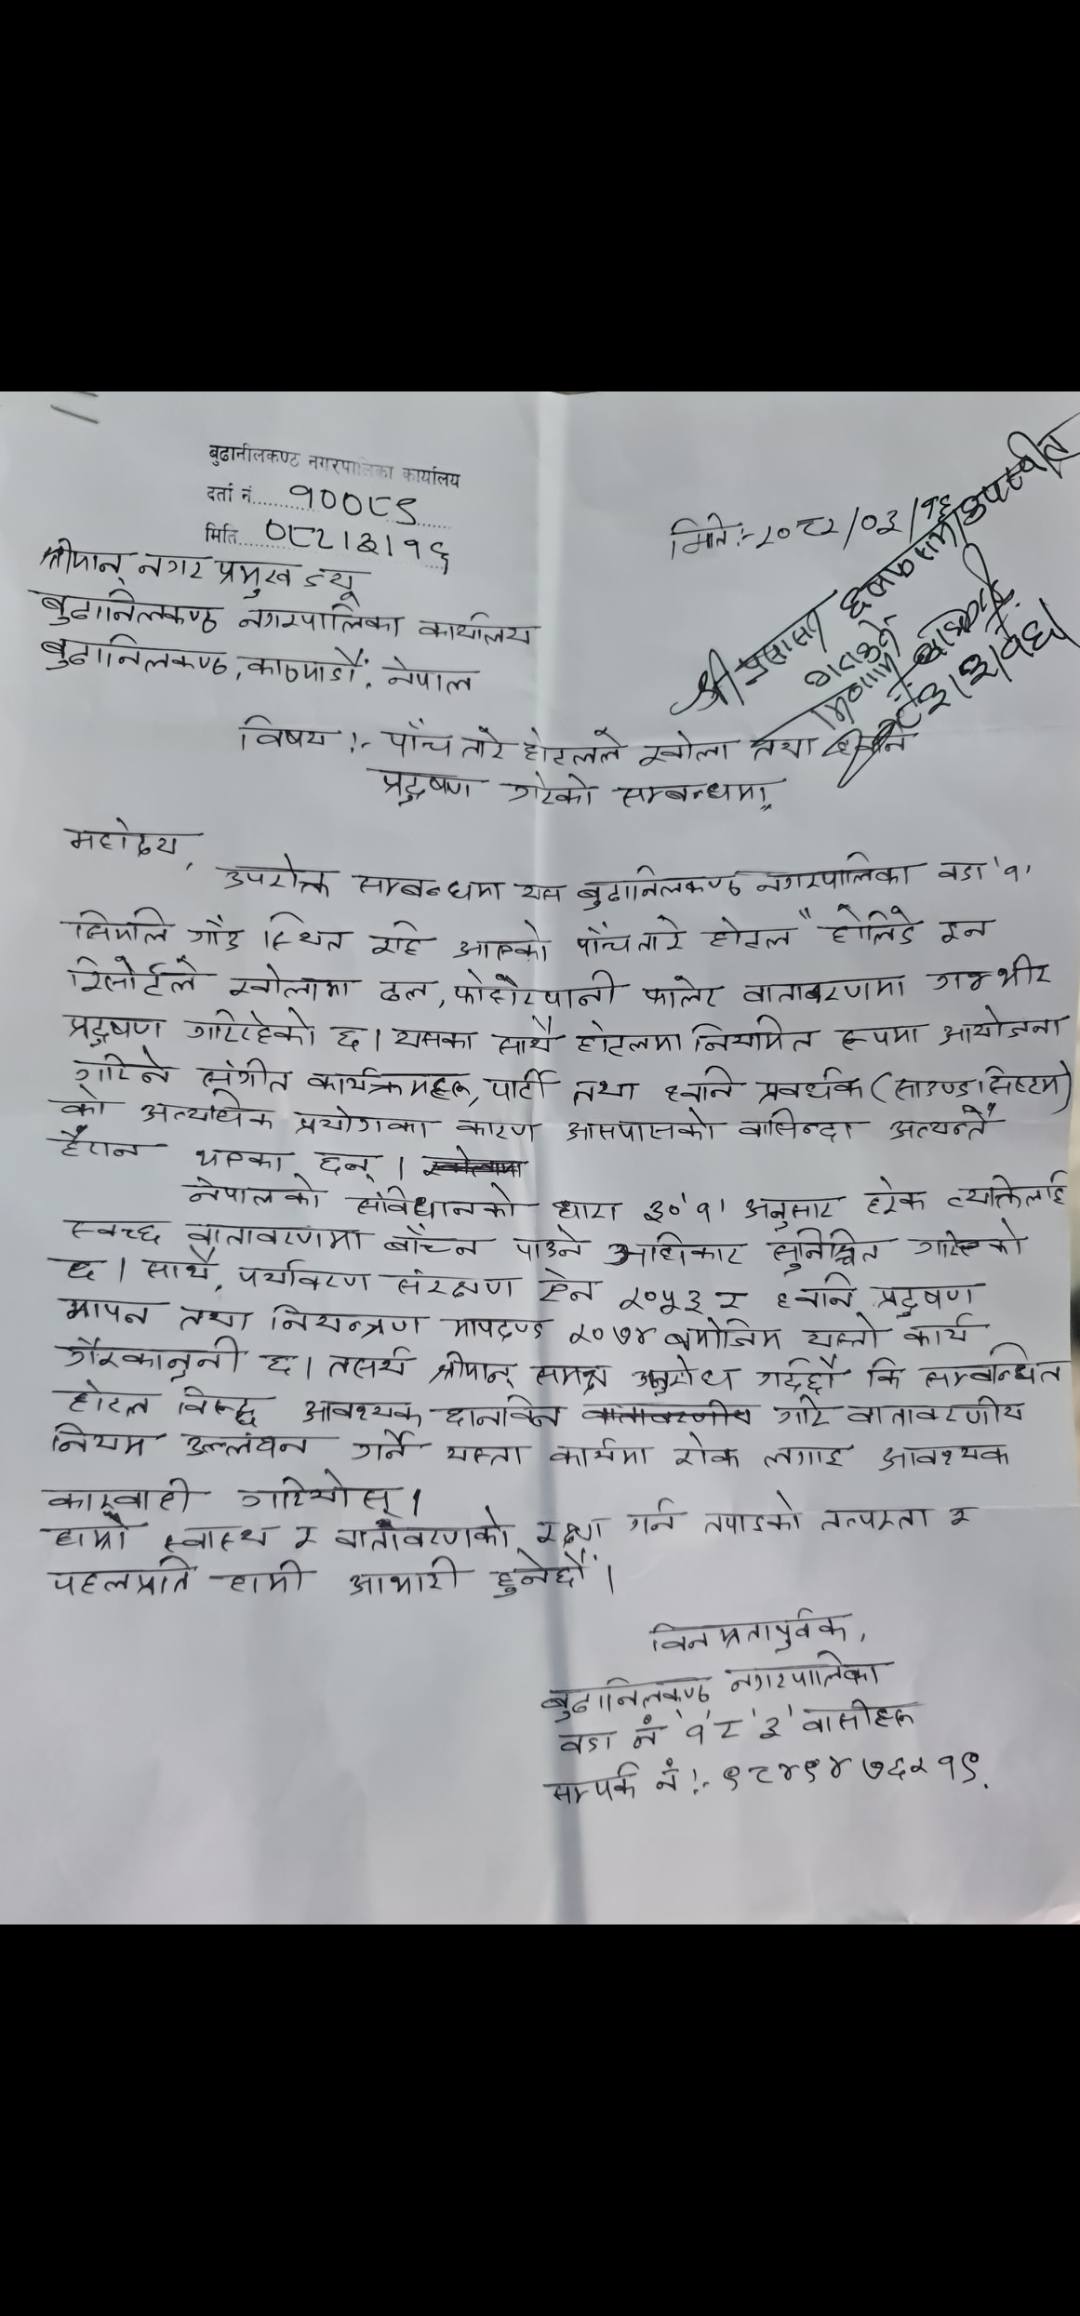 बुढानीलकण्ठ नगरपालिका कार्यालय
दर्ता नं.....१००८९
मिति..०८२।३।१६
मिति:- २०८२/०३/१६
श्री प्रशासन
श्रीमान् नगर प्रमुख ज्यू
बुढानिलकण्ठ नगरपालिका कार्यालय
बुढानिलकण्ठ, काठमाडौं, नेपाल
विषय :- पाँच तारे होटलले खोला तथा ध्वनि
प्रदुषण गरेको सम्बन्धमा,
महोदय,
उपरोक्त सम्बन्धमा यस बुढानिलकण्ठ नगरपालिका वडा '१'
सिमलि गाँउ स्थित रहि आएको पाँच तारे होटल "होलिडे इन
रिसोर्टले खोलामा ढल, फोहोरपानी फालेर वातावरणमा गम्भीर
प्रदुषण गरिरहेको छ। यसका साथै होटलमा नियमित रूपमा आयोजना
गरिने संगीत कार्यक्रमहरू, पार्टी तथा ध्वनि प्रवर्धक (साउण्ड सिष्टम)
को अत्याधिक प्रयोगका कारण आसपासको बासिन्दा अत्यन्तै
हैरान भएका छन्।
नेपालको संविधानको धारा ३०'१' अनुसार हरेक व्यक्तिलाई
स्वच्छ वातावरणमा बाँच्न पाउने अधिकार सुनिश्चित गरिएको
छ। साथै, पर्यावरण संरक्षण ऐन २०५३ र ध्वनि प्रदुषण
मापन तथा नियन्त्रण मापदण्ड २०७४ बमोजिम यस्तो कार्य
गैरकानुनी छ। तसर्थ श्रीमान् समक्ष अनुरोध गर्दछौं कि सम्बन्धित
होटल विरूद्ध आवश्यक छानविन गरि वातावरणीय
नियम उल्लंघन गर्ने यस्ता कार्यमा रोक लगाइ आवश्यक
कारवाही गरियोस्।
हाम्रो स्वास्थ र वातावरणको रक्षा गर्न तपाइको तत्परता र
पहलप्रति हामी आभारी हुनेछौं।
विनम्रतापुर्वक,
बुढानिलकण्ठ नगरपालिका
वडा नं '१' र '३' वासीहरू
सम्पर्क नं :- ९८४९४७६२१९.